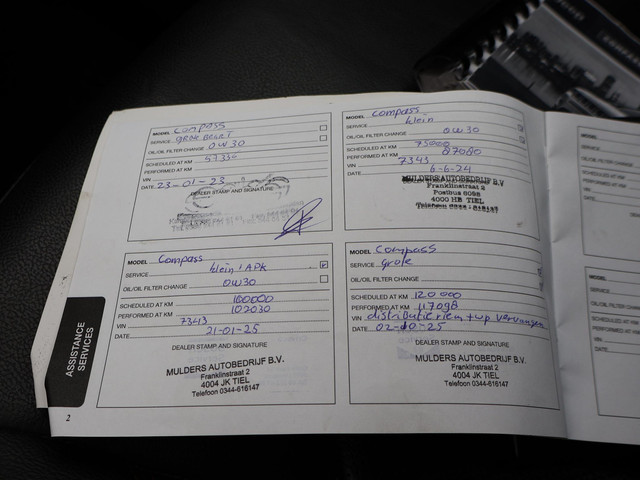 MODEL Compass
SERVICE GROTE BEURT
OIL/OIL FILTER CHANGE 0W30
SCHEDULED AT KM
PERFORMED AT KM
VIN
DATE 23-01-23
DEALER STAMP AND SIGNATURE
MODEL Compass
SERVICE klein
OIL/OIL FILTER CHANGE 0W30
SCHEDULED AT KM 75000
PERFORMED AT KM 87080
VIN 7343
DATE 6-6-24
MULDERS AUTOBEDRIJF B.V
Franklinstraat 2
Postbus 6098
4000 HB TIEL
MODEL Compass
SERVICE klein / APK
OIL/OIL FILTER CHANGE 0W30
SCHEDULED AT KM 100000
PERFORMED AT KM 102030
VIN 7343
DATE 21-01-25
DEALER STAMP AND SIGNATURE
MULDERS AUTOBEDRIJF B.V.
Franklinstraat 2
4004 JK TIEL
Telefoon 0344-616147
MODEL Compass
SERVICE Grote
OIL/OIL FILTER CHANGE
SCHEDULED AT KM 120000
PERFORMED AT KM 117098
VIN distributieriem + wp vervangen
DATE 02-10-25
DEALER STAMP AND SIGNATURE
MULDERS AUTOBEDRIJF B.V.
Franklinstraat 2
4004 JK TIEL
Telefoon 0344-616147
ASSISTANCE
SERVICES
2
MODEL
SERVICE